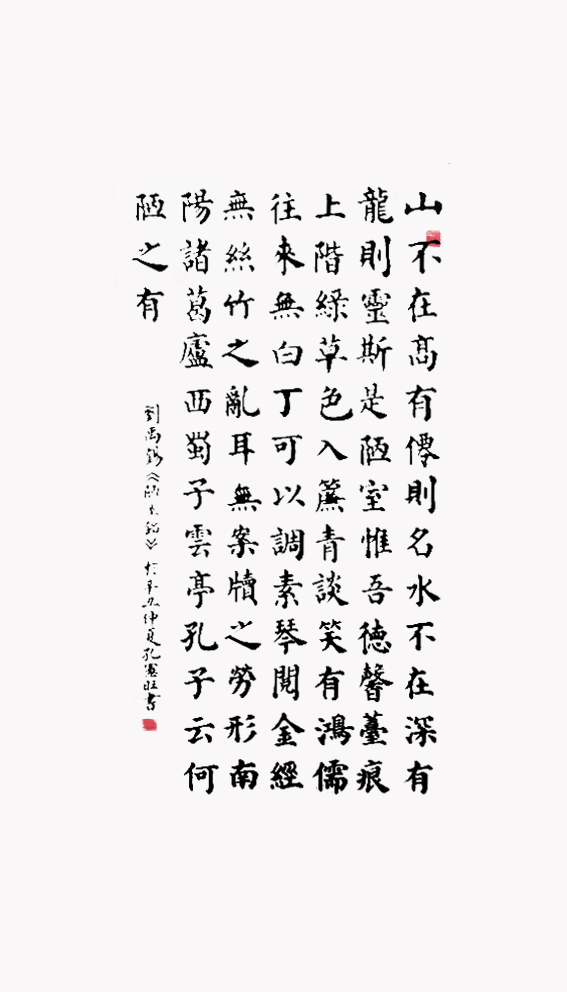 山不在高有僊則名水不在深有
龍則靈斯是陋室惟吾德馨薹痕
上階綠草色入簾青談笑有鴻儒
往來無白丁可以調素琴閱金經
無絲竹之亂耳無案牘之勞形南
陽諸葛廬西蜀子雲亭孔子云何
陋之有
劉禹錫《陋室銘》於辛丑仲夏孔憲旺書